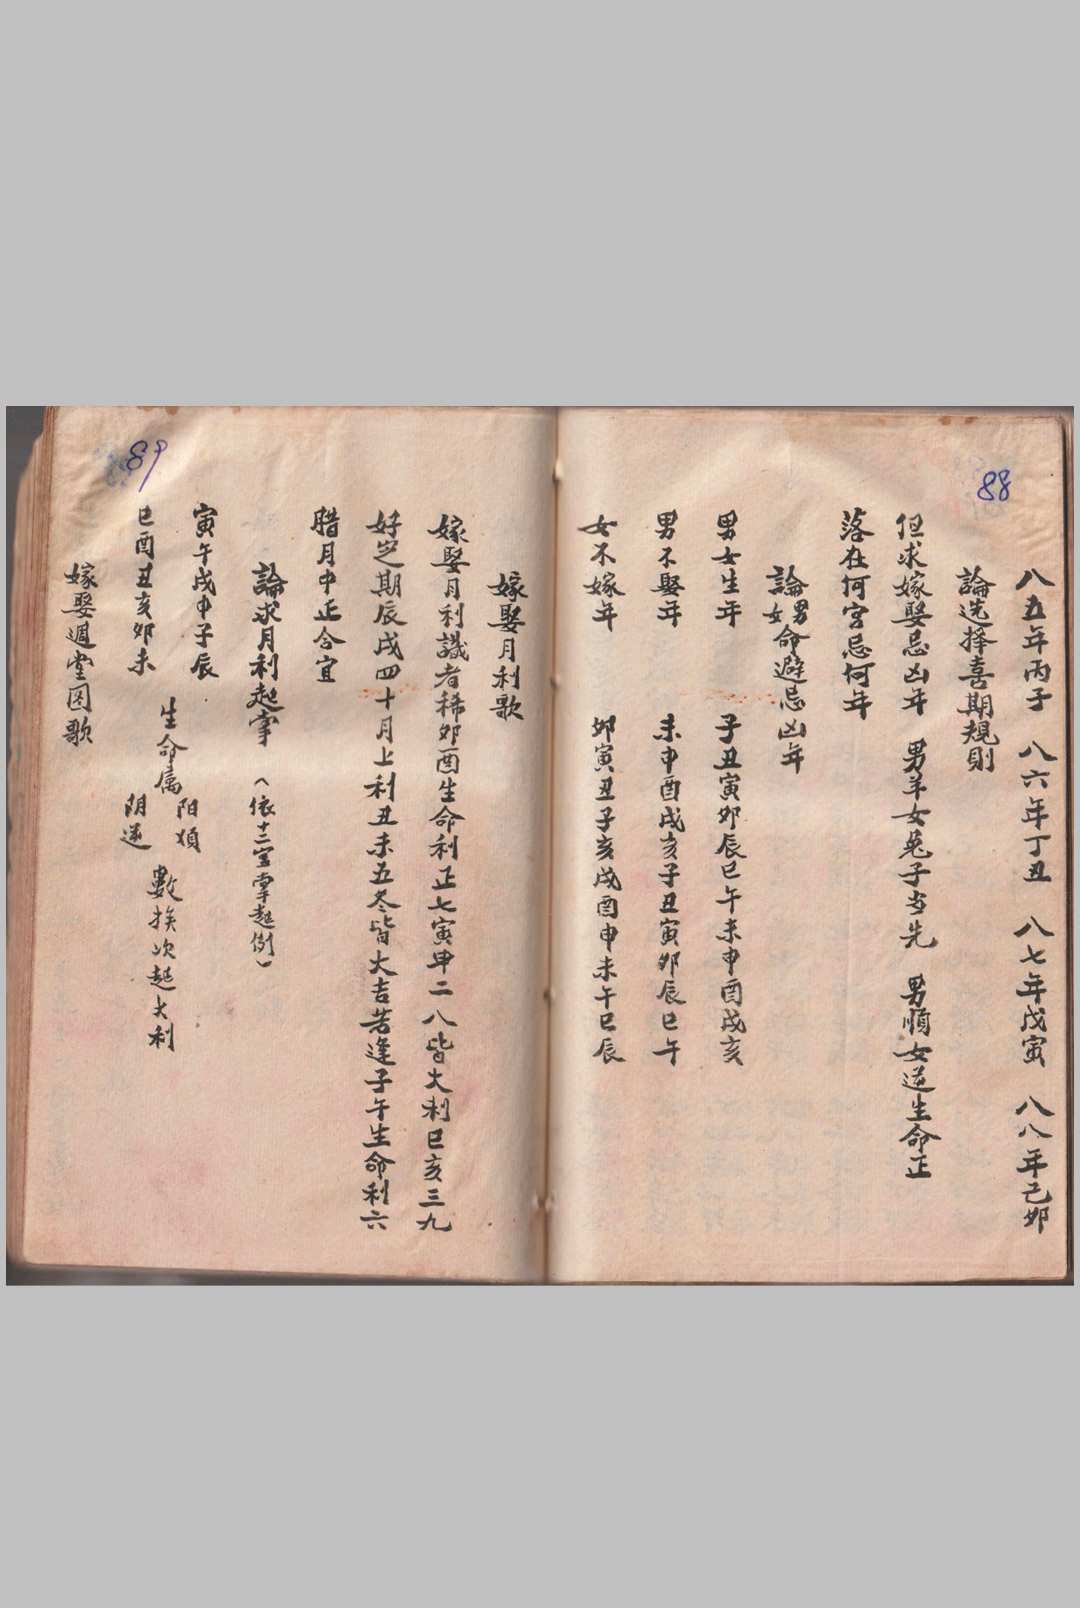 88
八五年丙子　八六年丁丑　八七年戊寅　八八年己卯
論选择喜期規則
但求嫁娶忌凶年　男羊女兔子当先　男順女逆生命正
落在何宮忌何年
論男女命避忌凶年
男女生年　子丑寅卯辰巳午未申酉戌亥
男不娶年　未申酉戌亥子丑寅卯辰巳午
女不嫁年　卯寅丑子亥戌酉申未午巳辰
89
嫁娶月利歌
嫁娶月利識者稀卯酉生命利正七寅申二八皆大利巳亥三九
好定期辰戌四十月上利丑未五冬皆大吉若逢子午生命利六
腊月中正合宜
論求月利起掌　(依十二宮掌起例)
寅午戌申子辰
巳酉丑亥卯未
生命属
阳順
阴逆
數挨次起大利
嫁娶週堂図歌